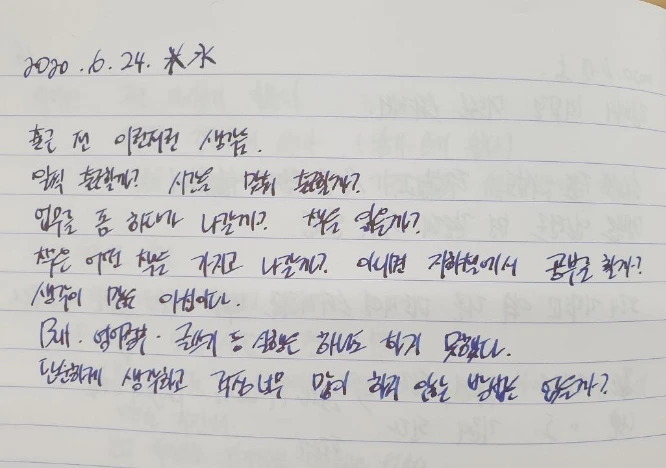 2020.6.24. 水
출근 전 이런저런 생각들.
일찍 출근할까? 시간 맞춰 출근할까?
업무를 좀 하다가 나갈까? 책을 읽을까?
책은 어떤 책을 가지고 나갈까? 아니면 지하철에서 공부를 할까?
생각이 많은 아침이다.
But. 영어공부. 글쓰기 등 실행은 하나도 하지 못했다.
단순하게 생각하고 걱정 너무 많이 하지 않는 방법은 없을까?